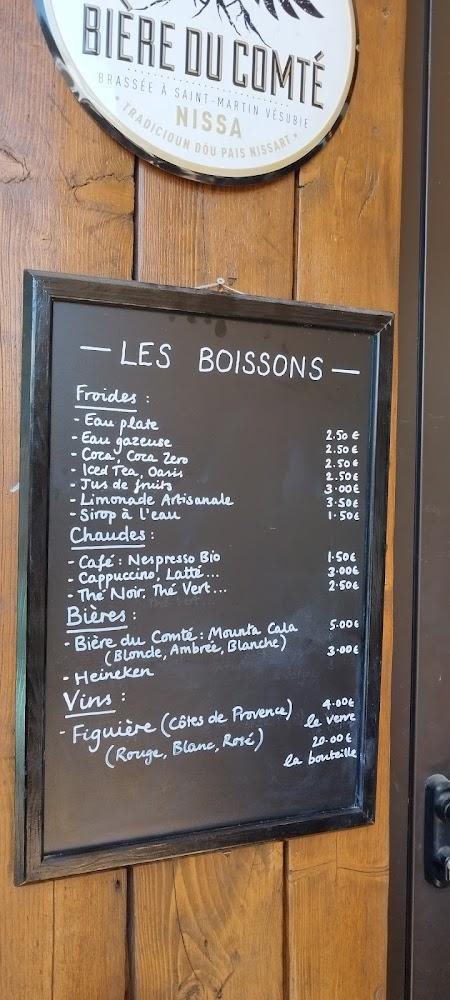 BIÈRE DU COMTÉ
BRASSÉE À SAINT-MARTIN VÉSUBIE
NISSA
• TRADICIOUN DÒU PAIS NISSART •
— LES BOISSONS —
Froides :
- Eau plate 2.50 €
- Eau gazeuse 2.50 €
- Coca, Coca Zero 2.50 €
- Iced Tea, Oasis 2.50 €
- Jus de fruits 3.00€
- Limonade Artisanale 3.50€
- Sirop à l'eau 1.50€
Chaudes :
- Café : Nespresso Bio 1.50€
- Cappuccino, Latté... 3.00€
- Thé Noir, Thé Vert... 2.50€
Bières :
- Bière du Comté : Mounta Cala 5.00€
(Blonde, Ambrée, Blanche)
- Heineken 3.00€
Vins :
- Figuière (Côtes de Provence) 4.00€ le verre
(Rouge, Blanc, Rosé) 20.00€ la bouteille